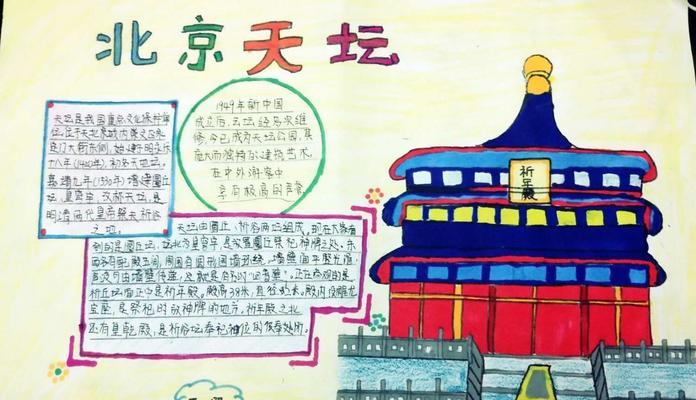 北京天坛
天坛是我国重点文化保护单
位,位于天北京城内崇文区永
定门大街东侧,始建于明永乐
十八年(1420年),初名天地坛。
嘉靖九年(1530年)增建圜丘
坛,皇穹宇,改称天坛,是
明清两代皇帝祭天祈谷
之地。
1949年新中国
成立后,天坛经多次维
修,今已成为天坛公园,其
庞大而独特的建筑艺术,
在中外游客中
享有极高的声誉
天坛由圜丘、祈谷两坛组成。现在人
到的是圜丘坛,坛北为皇穹宇,是放置圜丘祭祀神牌之处。东
西各有配殿五间,周围有圆形围墙环绕,墙壁
声波可由墙壁传递,这就是的"回音壁"。正在参观的是
祈丘坛,居正中是祈年殿。殿高38米,直径 米。殿内设雕龙
宝座,是祭祀时放神牌的地方,祈年殿之北
还有皇乾殿,是祈谷坛奉祀神位的
祈年殿